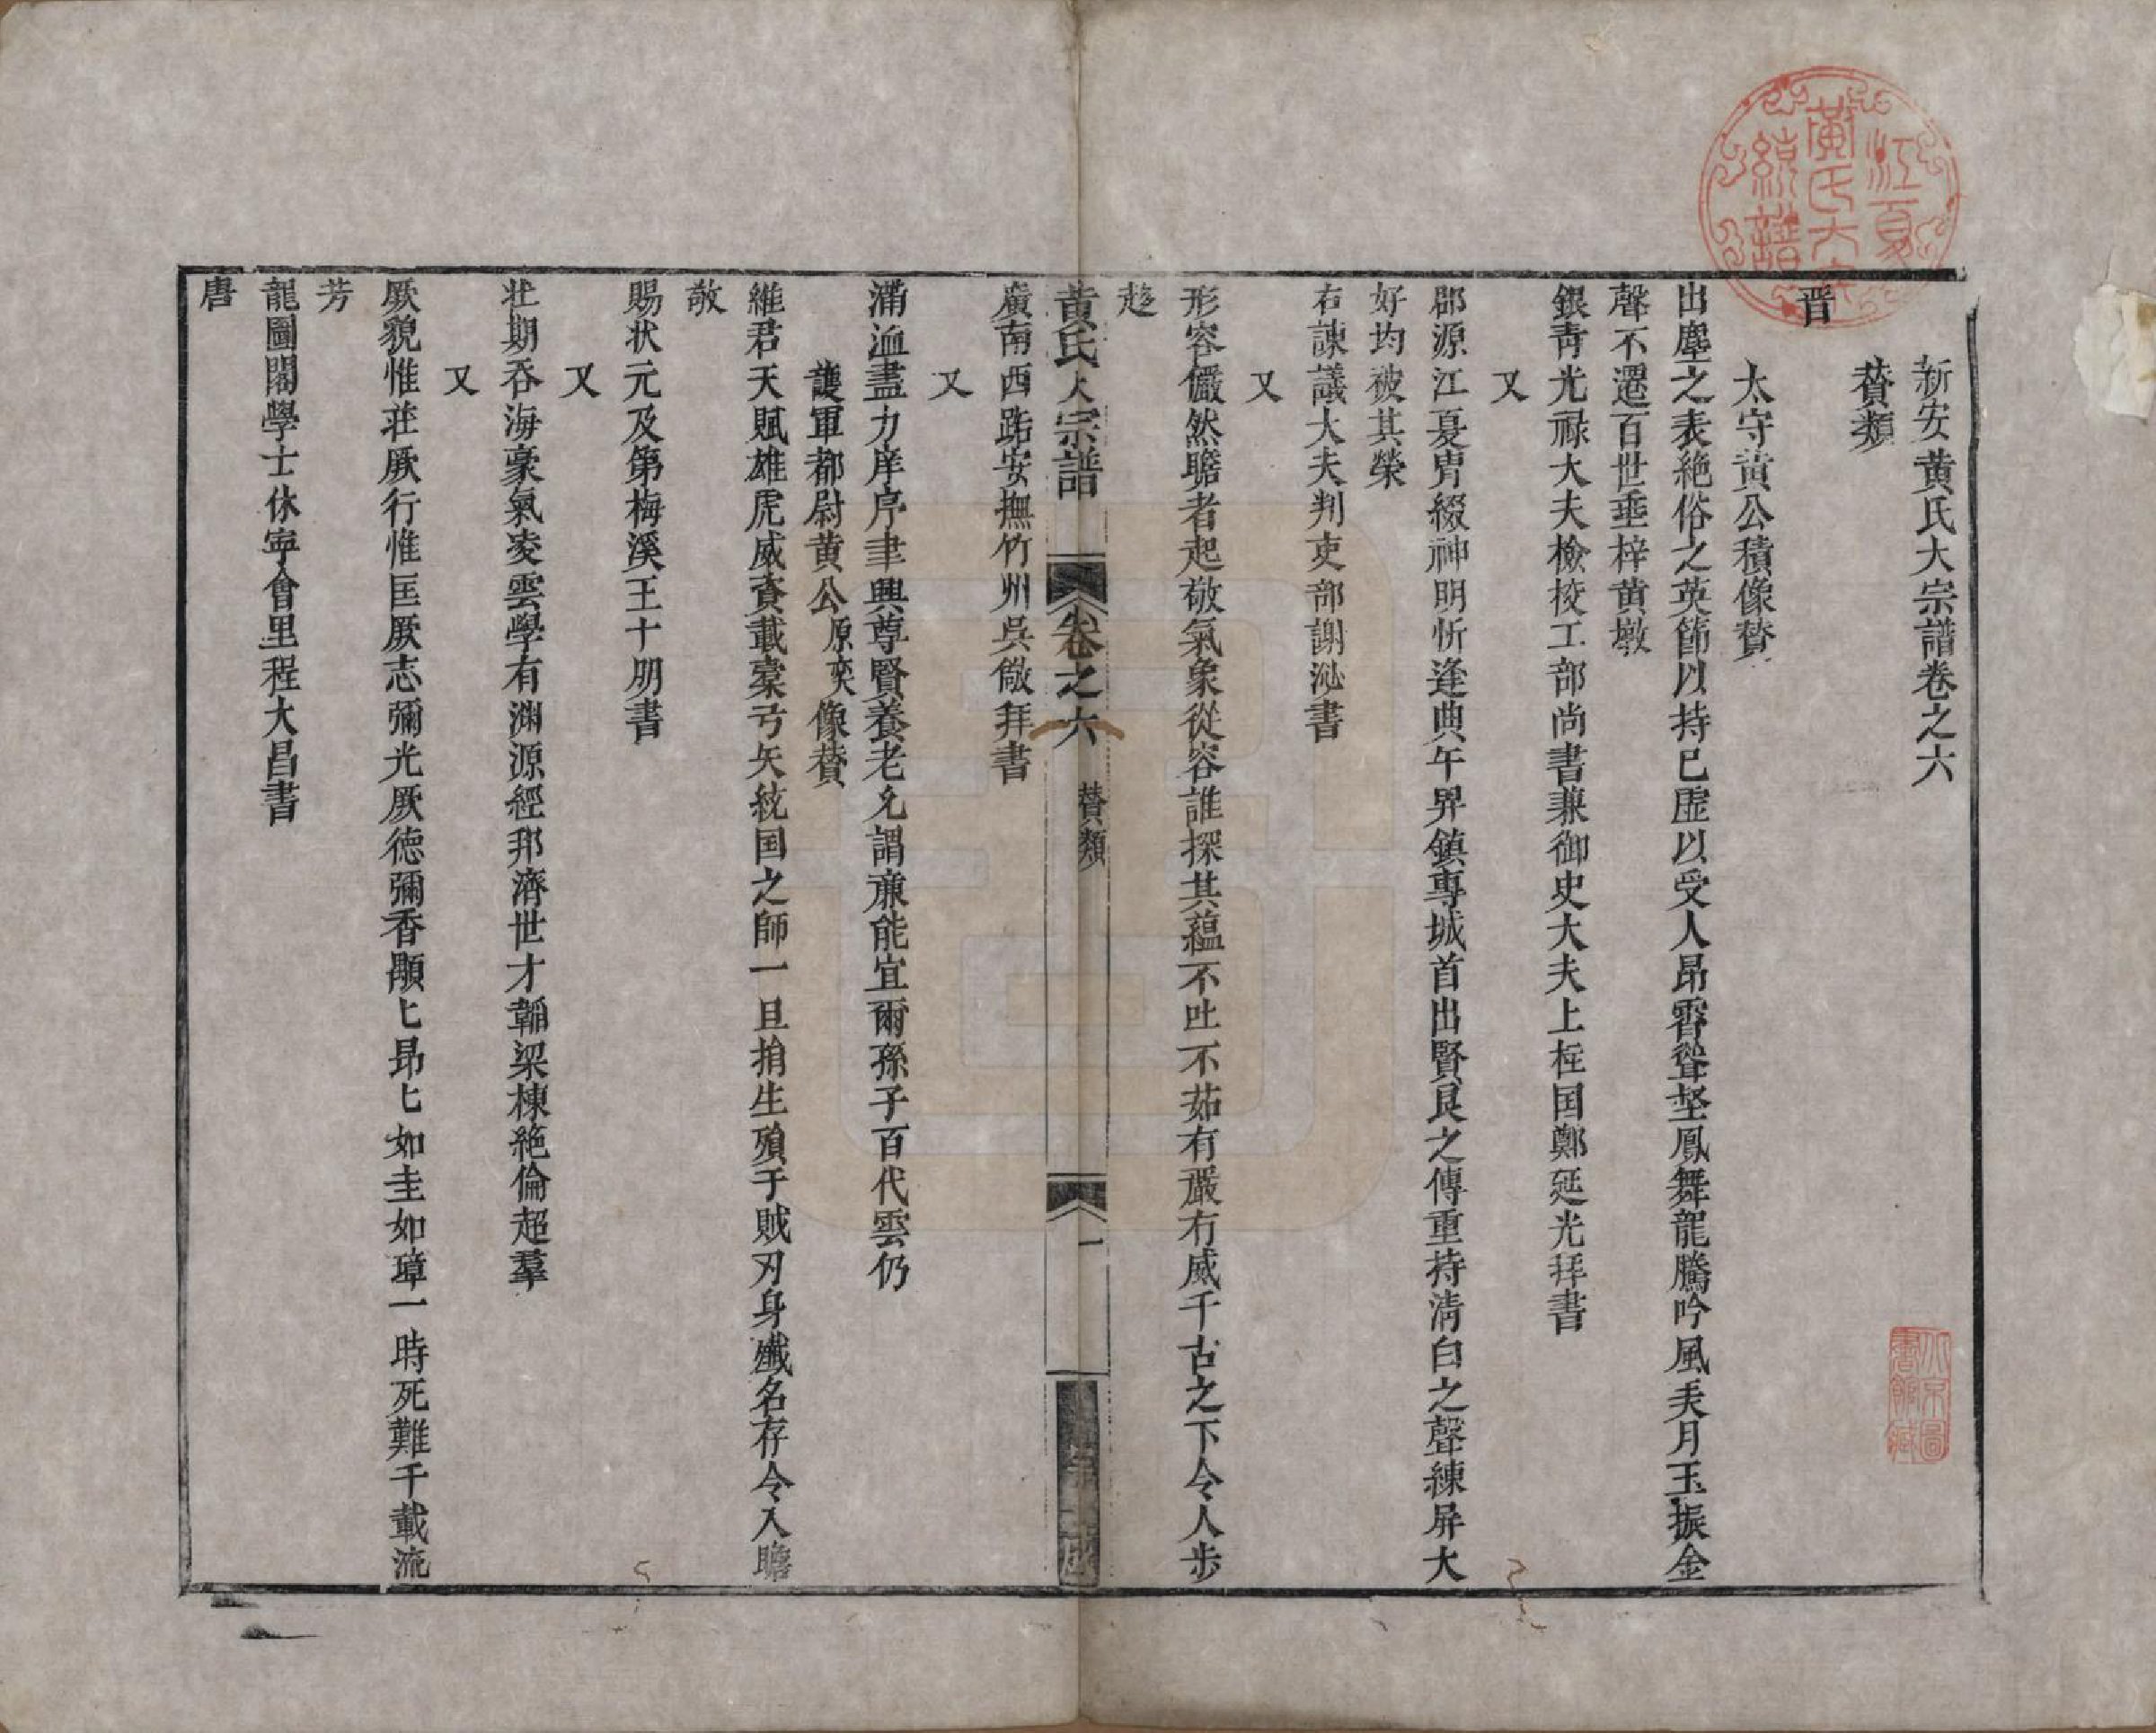 新安黄氏大宗譜卷之六
賛類
晋
太守黄公積像賛
出塵之表絶俗之英節以持已虛以受人昂霄聳壑鳳舞龍騰吟風美月玉振金
聲不遷百世垂梓黄墩
銀青光禄大夫檢校工部尚書兼御史大夫上柱国鄭延光拜書
又
郡源江夏冑綴神明忻逢典午畀鎮專城首出賢良之傳重持清白之聲練屏大
好均被其榮
右諫議大夫判吏部謝泌書
又
形容儼然瞻者起敬氣象從容誰探其蘊不吐不茹有嚴有威千古之下令人歩
趍
黄氏大宗譜
卷之六
賛類
一
廣南西路安撫竹州吳儆拜書
又
溝洫盡力庠序聿興尊賢養老允謂亷能宜爾孫子百代雲仍
護軍都尉黄公原奕像賛
維君天賦雄虎威賫載櫜弓矢統国之師一旦捐生殞于賊刃身殲名存令入瞻
敬
賜状元及第梅溪王十朋書
又
壮期吞海豪氣凌雲學有渊源經邦濟世才韜梁棟絶倫超羣
又
厥貌惟荘厥行惟匡厥志彌光厥徳彌香顒匕昻匕如圭如璋一時死難千載流
芳
龍圖閣學士休寕會里程大昌書
唐
江夏
黃氏大宗
統譜
北京圖
書館藏